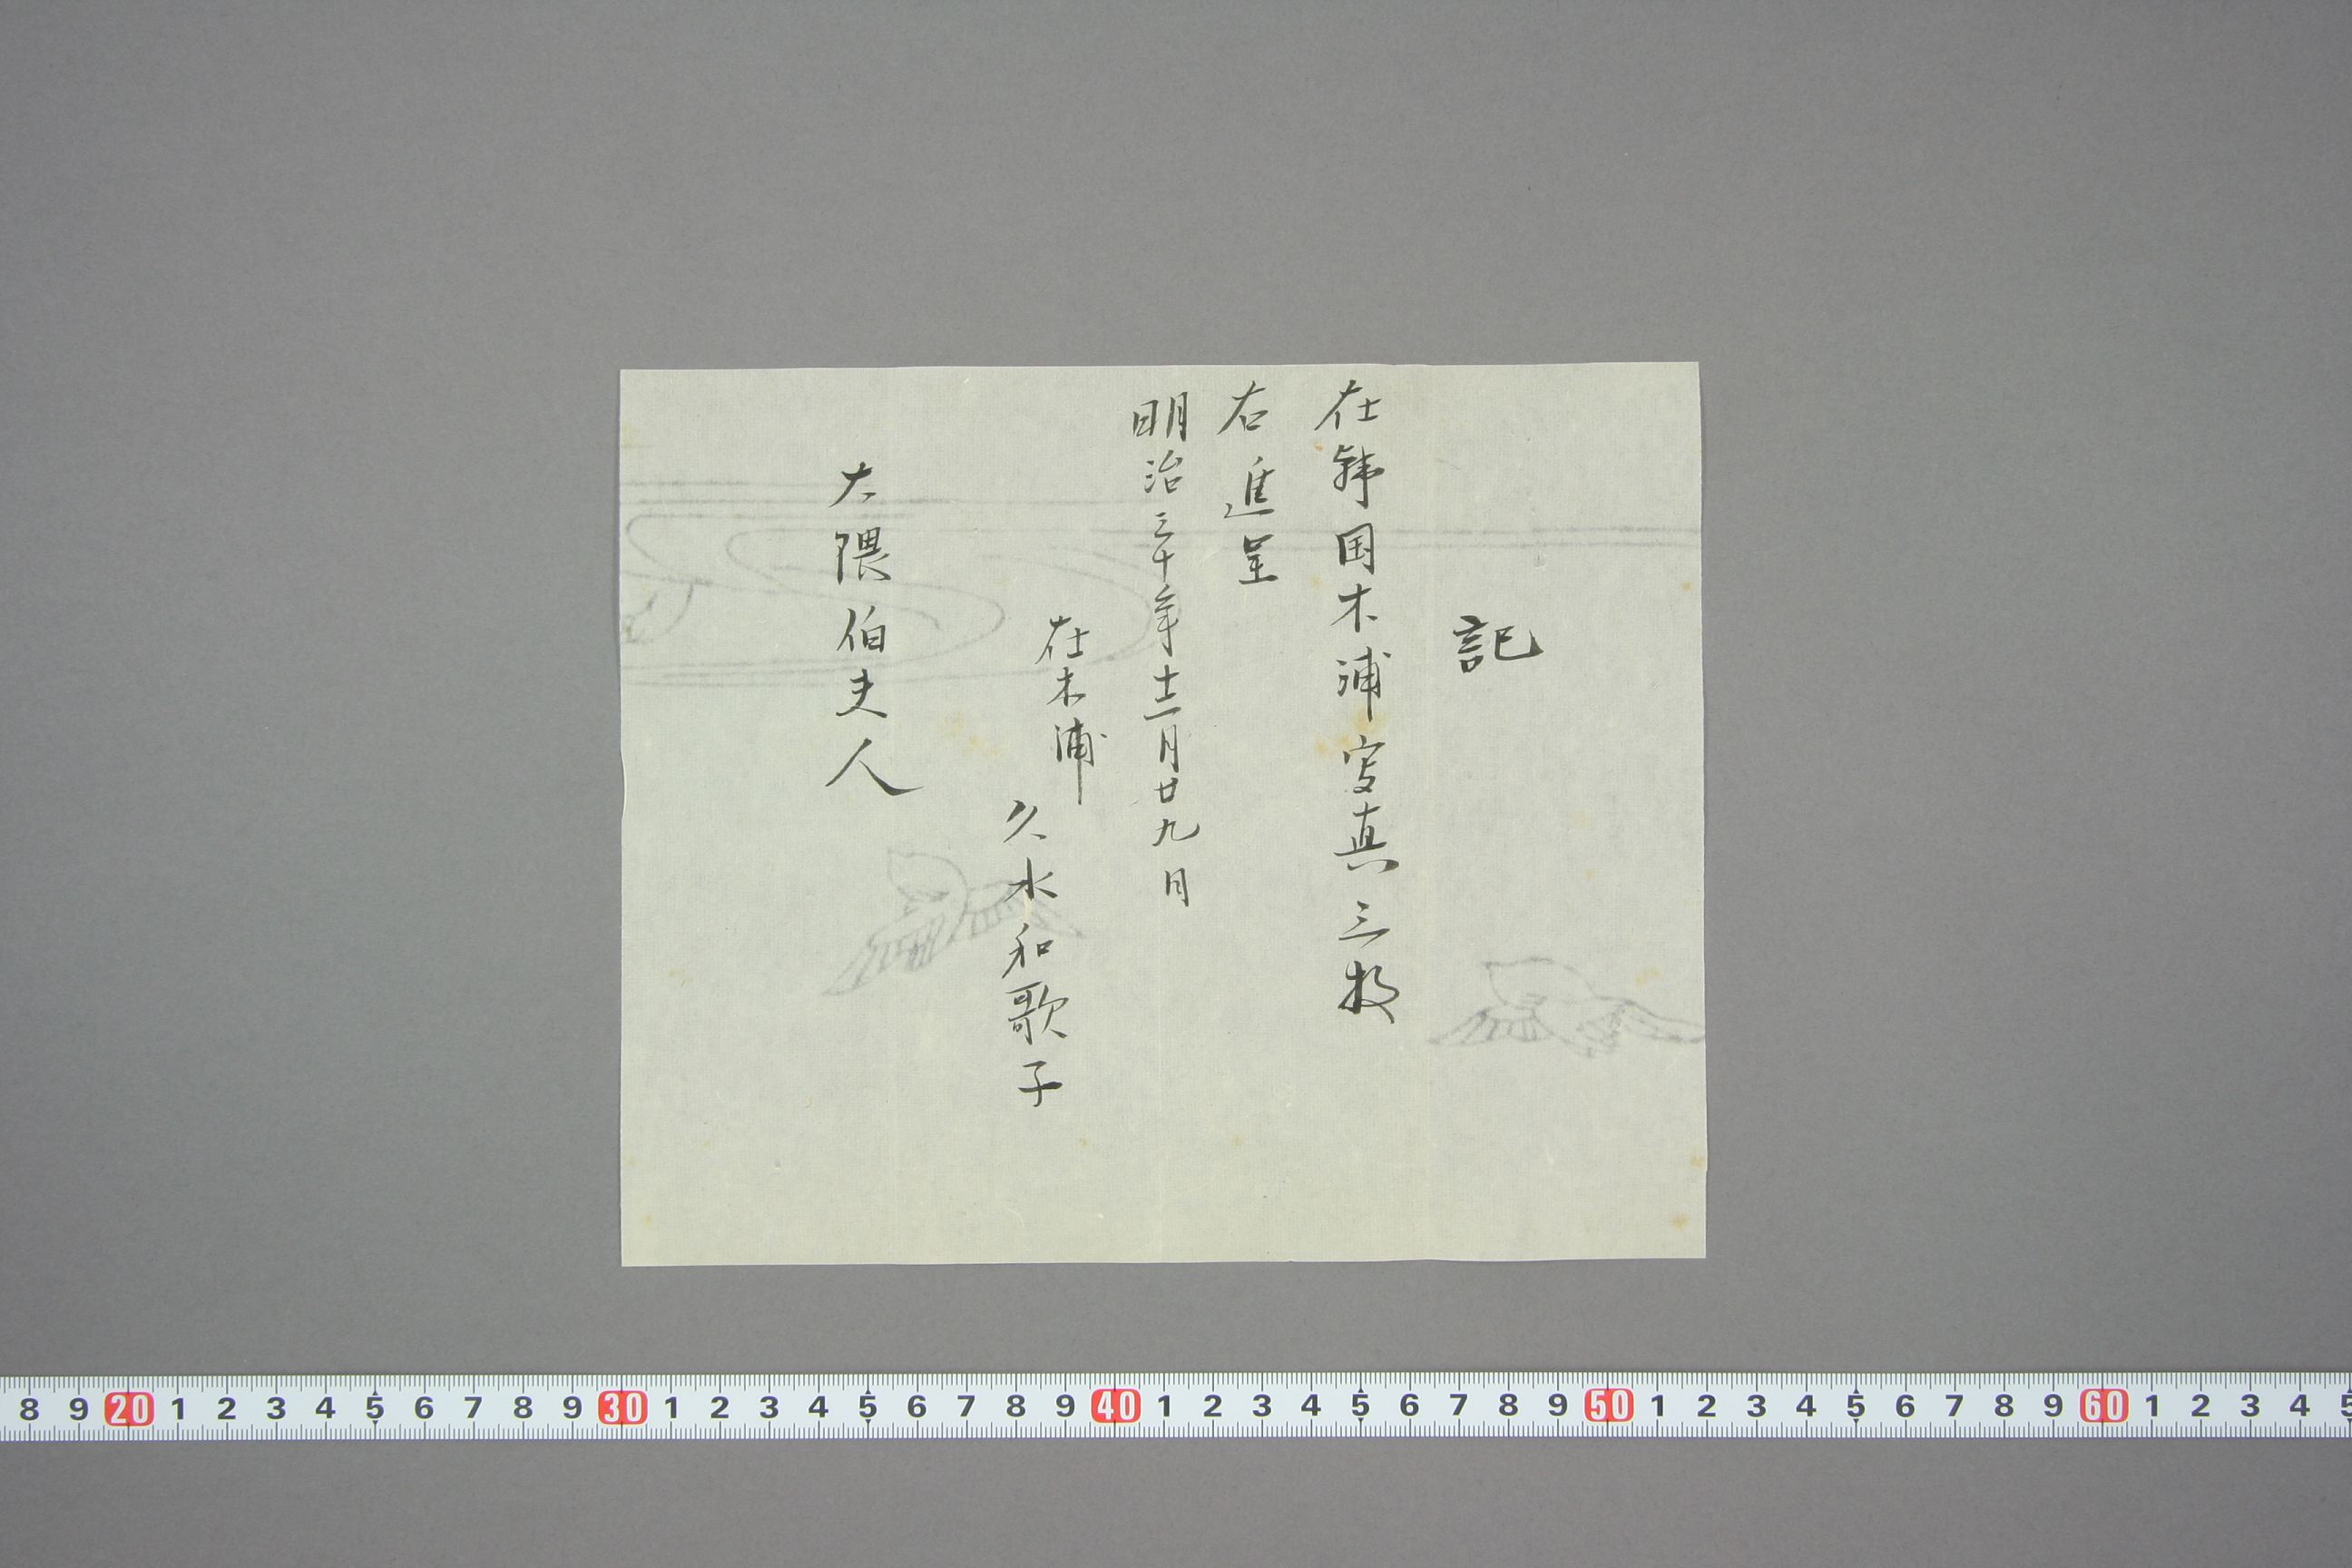 記
在韓国木浦写真三枚
右進呈
明治三十年十二月廿九日
在木浦
久水和歌子
大隈伯夫人
8 9 20 1 2 3 4 5 6 7 8 9 30 1 2 3 4 5 6 7 8 9 40 1 2 3 4 5 6 7 8 9 50 1 2 3 4 5 6 7 8 9 60 1 2 3 4 5